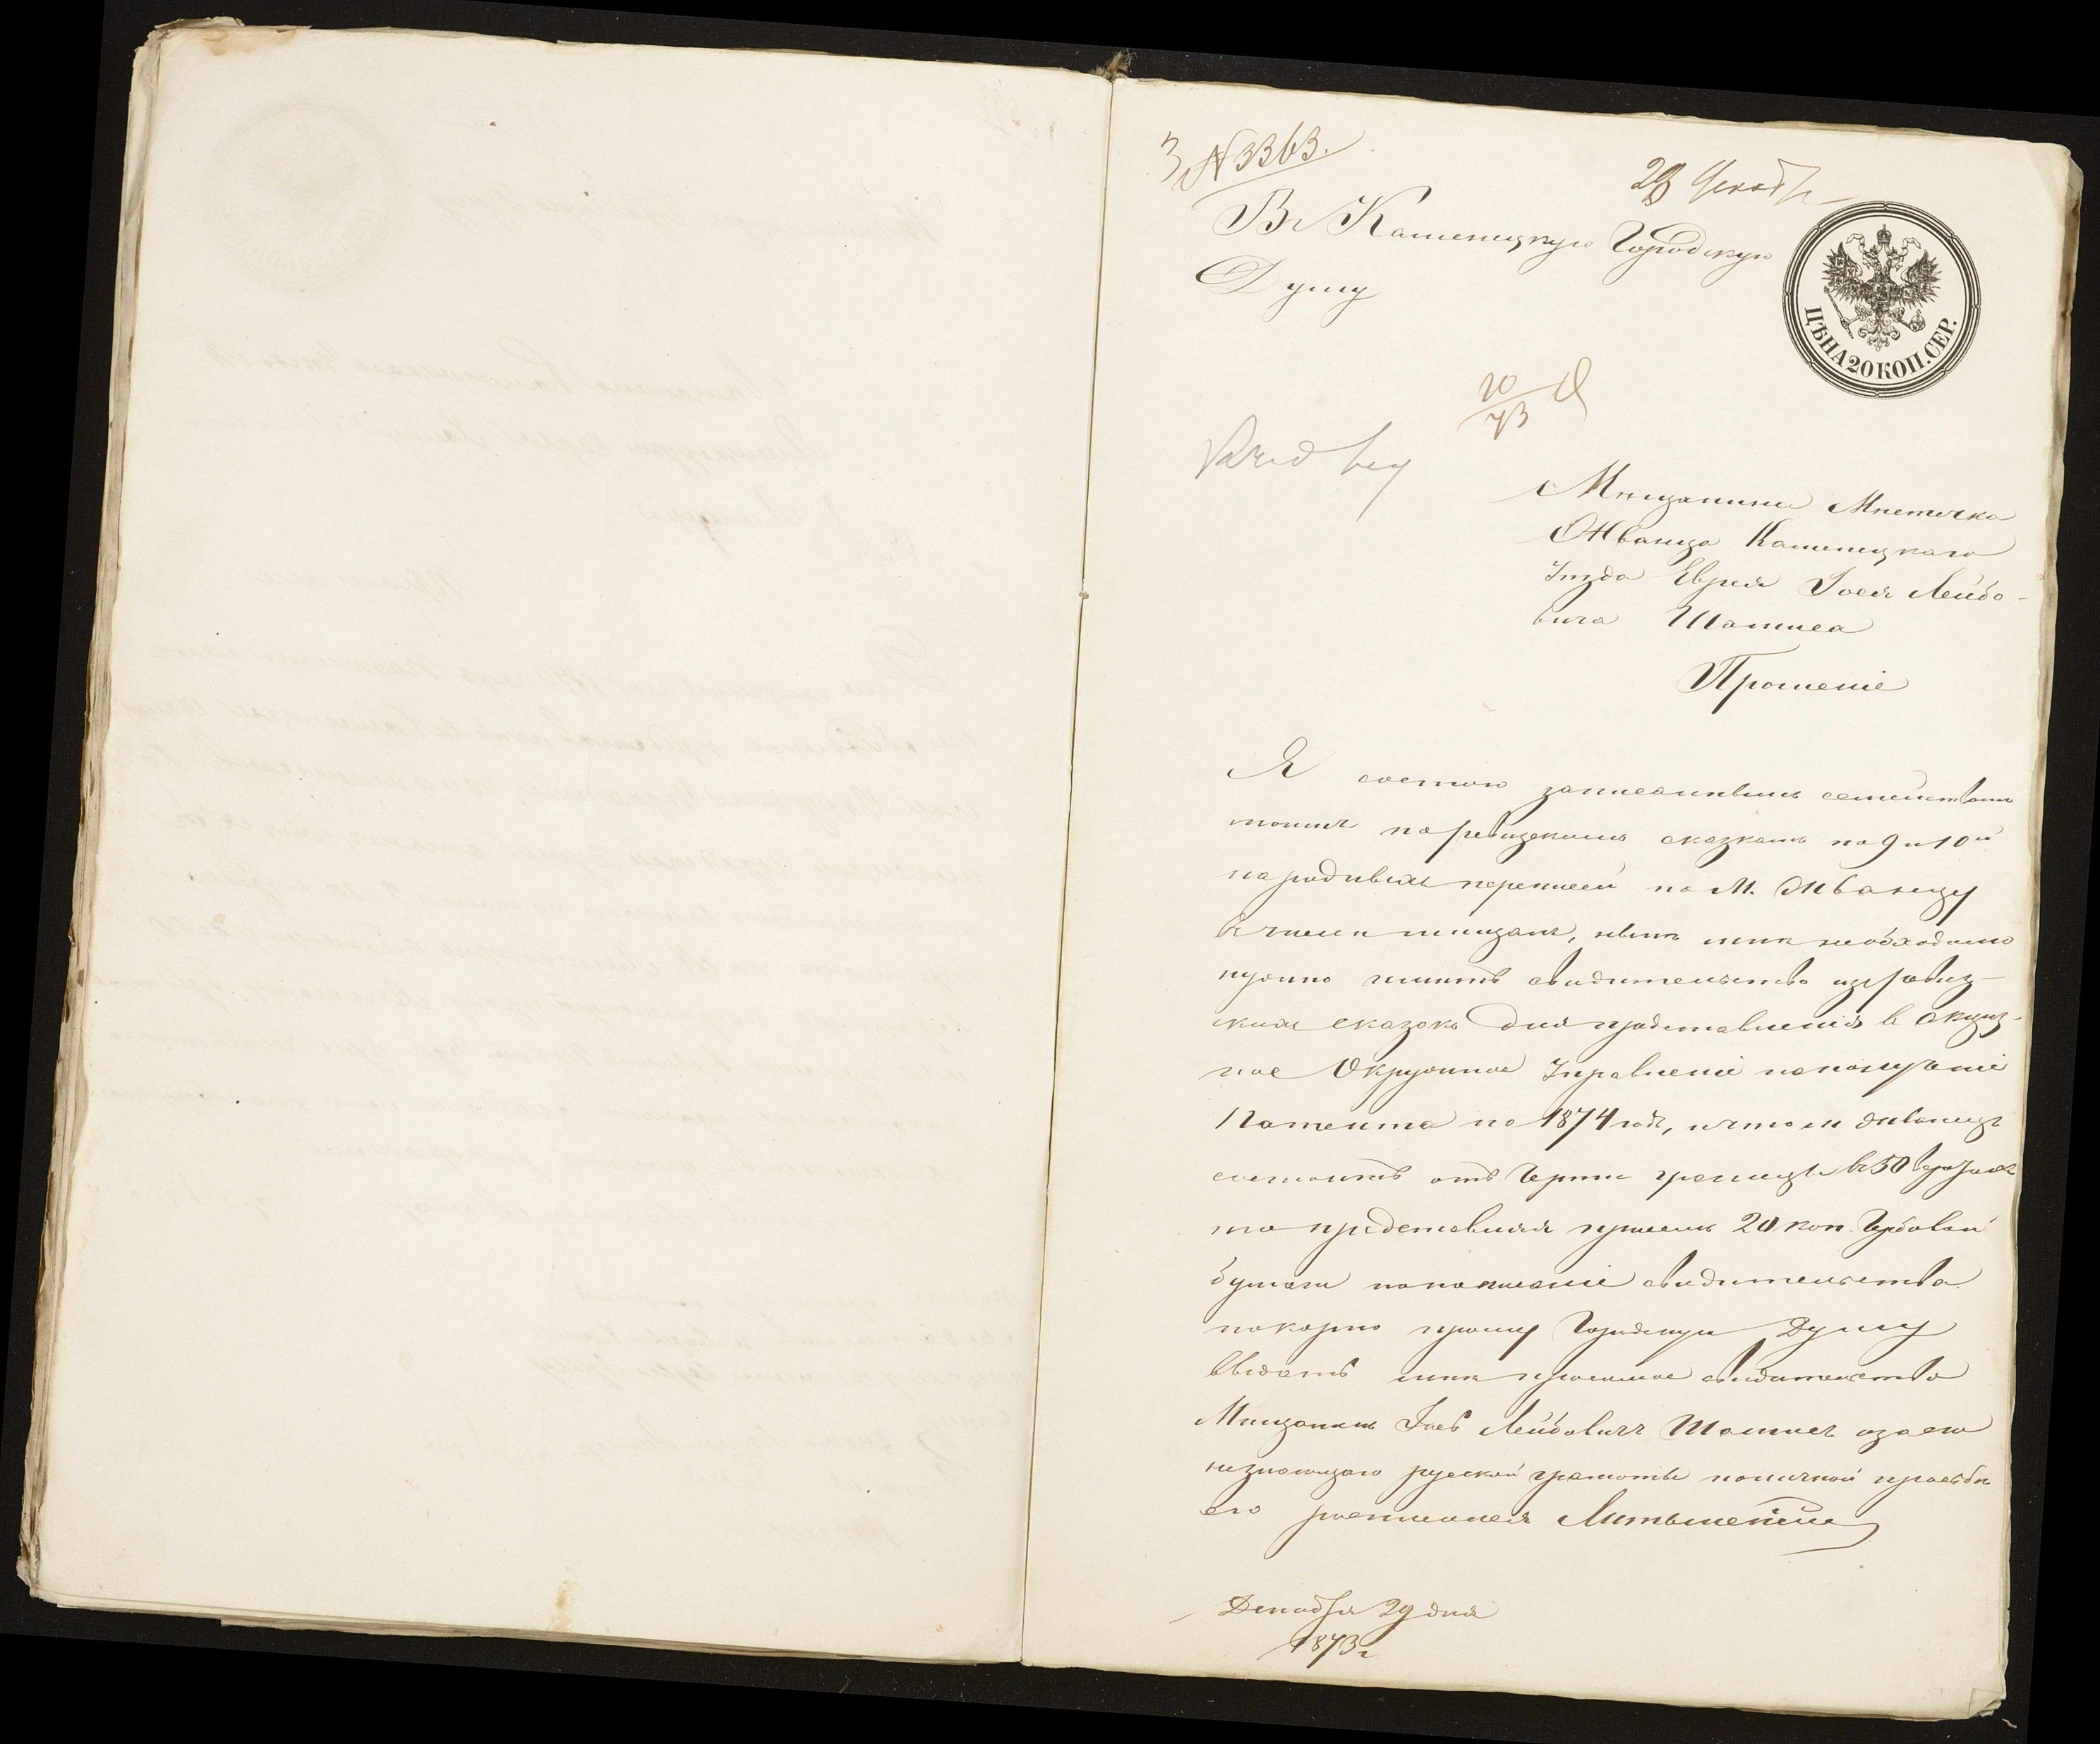 № 3363.
29 Декабр
Въ Каменецкую Городскую
Думу
ЦѢНА 20 КОП. СЕР.
20
73
Мѣщанина Мѣстечка
Жванца Каменецкаго
Уѣзда Еврея Іося Лейбо-
вича Шамиса
Прошеніе
Я состою записаннымъ семействомъ
моимъ по ревизскимъ сказкамъ по 9 и 10й
народныхъ переписей по М. Жванцу
въ числѣ мѣщанъ, нынѣ мнѣ необходимо
нужно имѣть свидѣтельство изъ ревиз-
кихъ сказокъ для представленія в Акциз-
ное Окружное Управленіе на полученіе
Патента на 1874 годъ, и что м Жванецъ
состоитъ отъ Черты границы въ 50 верстахъ
то представляя при семъ 20 коп. Гербовой
бумаги на написаніе свидѣтельства
покорно прошу Городскую Думу
выдать мнѣ просимое свидѣтельство
Мѣщанинъ Іось Лейбовичъ Шамисъ а за его
незнающаго русской грамоты по личной просьбѣ
его росписался
Декабря 29 дня
1873 г